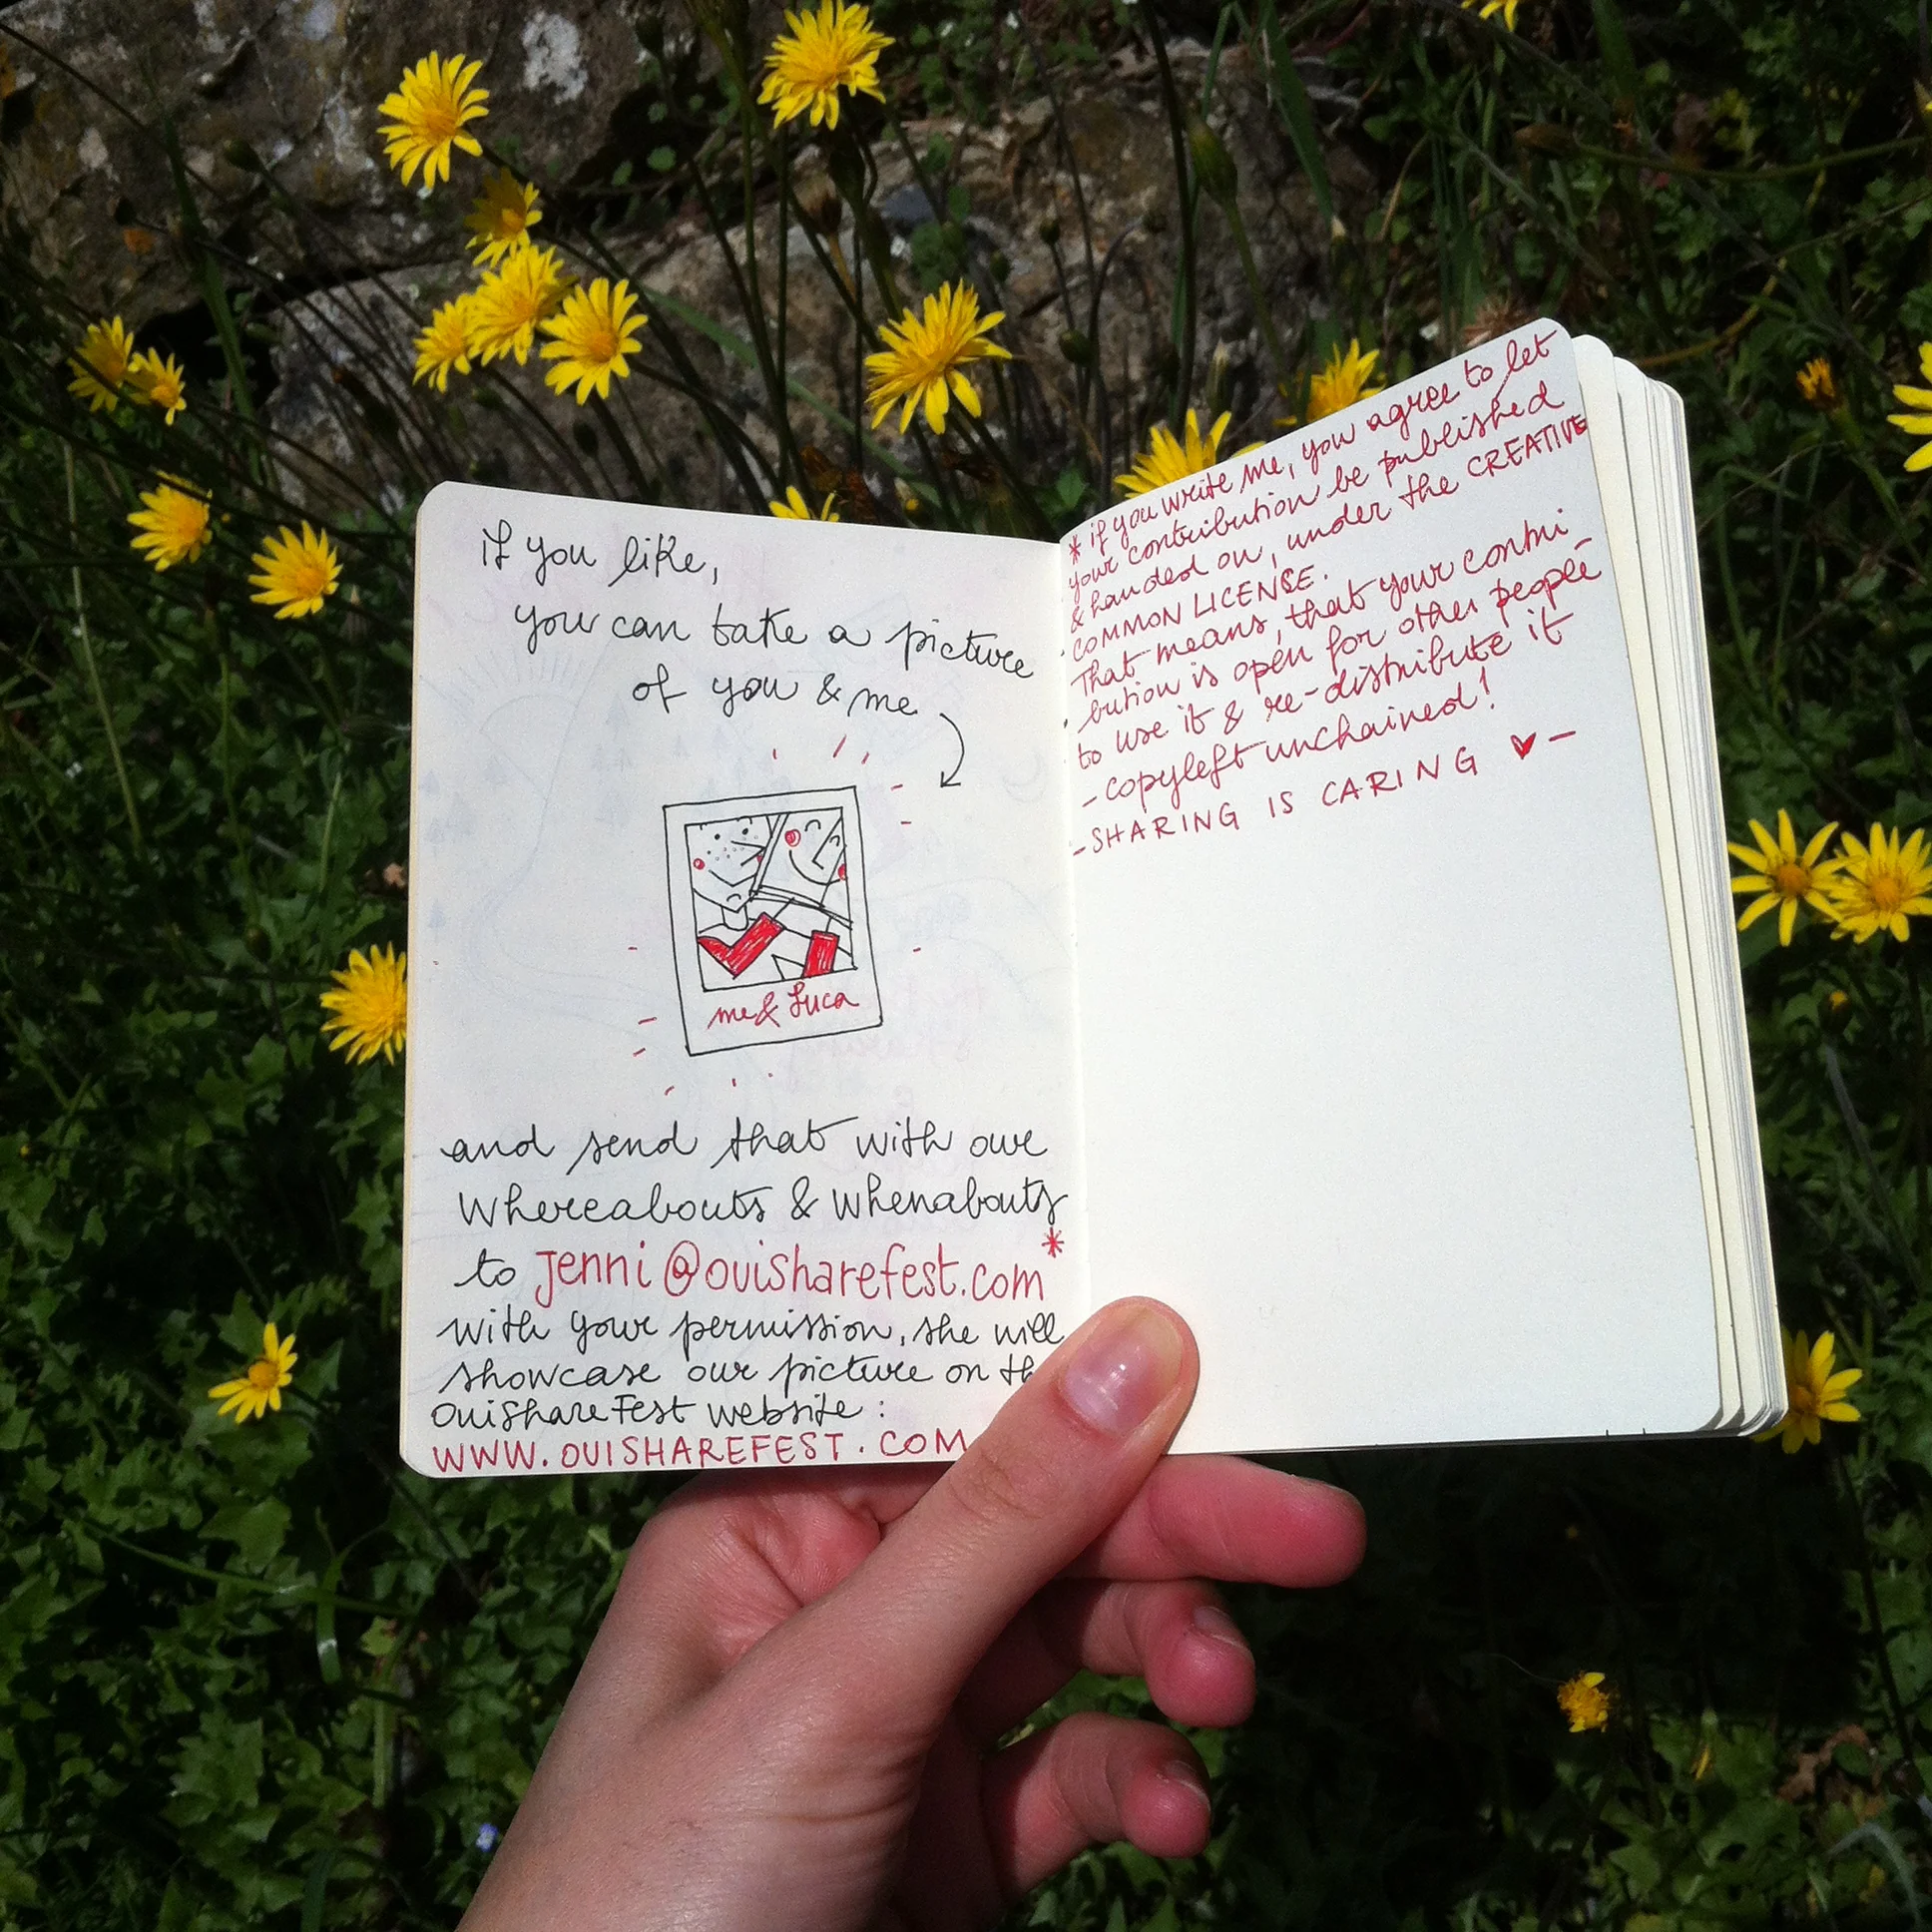 if you like,
you can take a picture
of you & me
me & Luca
and send that with our
whereabouts & whenabouts
to jenni@ouisharefest.com*
with your permission, she will
showcase our picture on th
OuiShareFest website:
WWW.OUISHAREFEST.COM
* if you write me, you agree to let
your contribution be published
& handed on, under the CREATIVE
COMMON LICENSE.
That means, that your contri-
bution is open for other people
to use it & re-distribute it
- copyleft unchained!
- SHARING IS CARING ♥ -